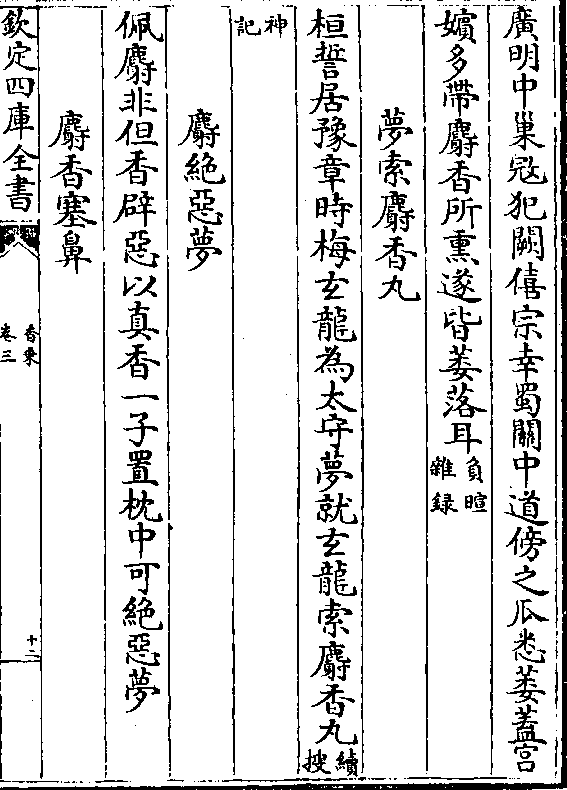 廣明中巢冦犯闕僖宗幸蜀關中道傍之瓜悉萎蓋宫
嬪多帶麝香所熏遂皆萎落耳負暄雜録
夢索麝香丸
桓誓居豫章時梅玄龍為太守夢就玄龍索麝香丸續搜
神記
麝絶惡夢
佩麝非但香辟惡以真香一子置枕中可絶惡夢
麝香塞鼻
欽定四庫全書
香乗
卷三
十二